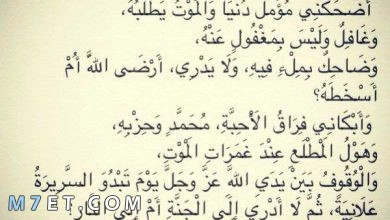 أَضْحَكَنِي مُؤَمِّلُ دُنْيَا وَالْمَوْتُ يَطْلُبُهُ،
وَغَافِلٌ وَلَيْسَ بِمَغْفُولٍ عَنْهُ،
وَضَاحِكٌ بِمِلْءِ فِيهِ، وَلَا يَدْرِي، أَرْضَى اللَّهَ أَمْ
أَسْخَطَهُ؟
وَأَبْكَانِي فِرَاقُ الْأَحِبَّةِ، مُحَمَّدٍ وَحِزْبِهِ،
وَهَوْلُ الْمُطَّلَعِ عِنْدَ غَمَرَاتِ الْمَوْتِ،
وَالْوُقُوفُ بَيْنَ يَدَيِ اللَّهِ عَزَّ وَجَلَّ يَوْمَ تَبْدُو السَّرِيرَةُ
عَلَانِيَةً، ثُمَّ لَا أَدْرِي إِلَى الْجَنَّةِ أَمْ إِلَى النَّارِ
M7ET.COM